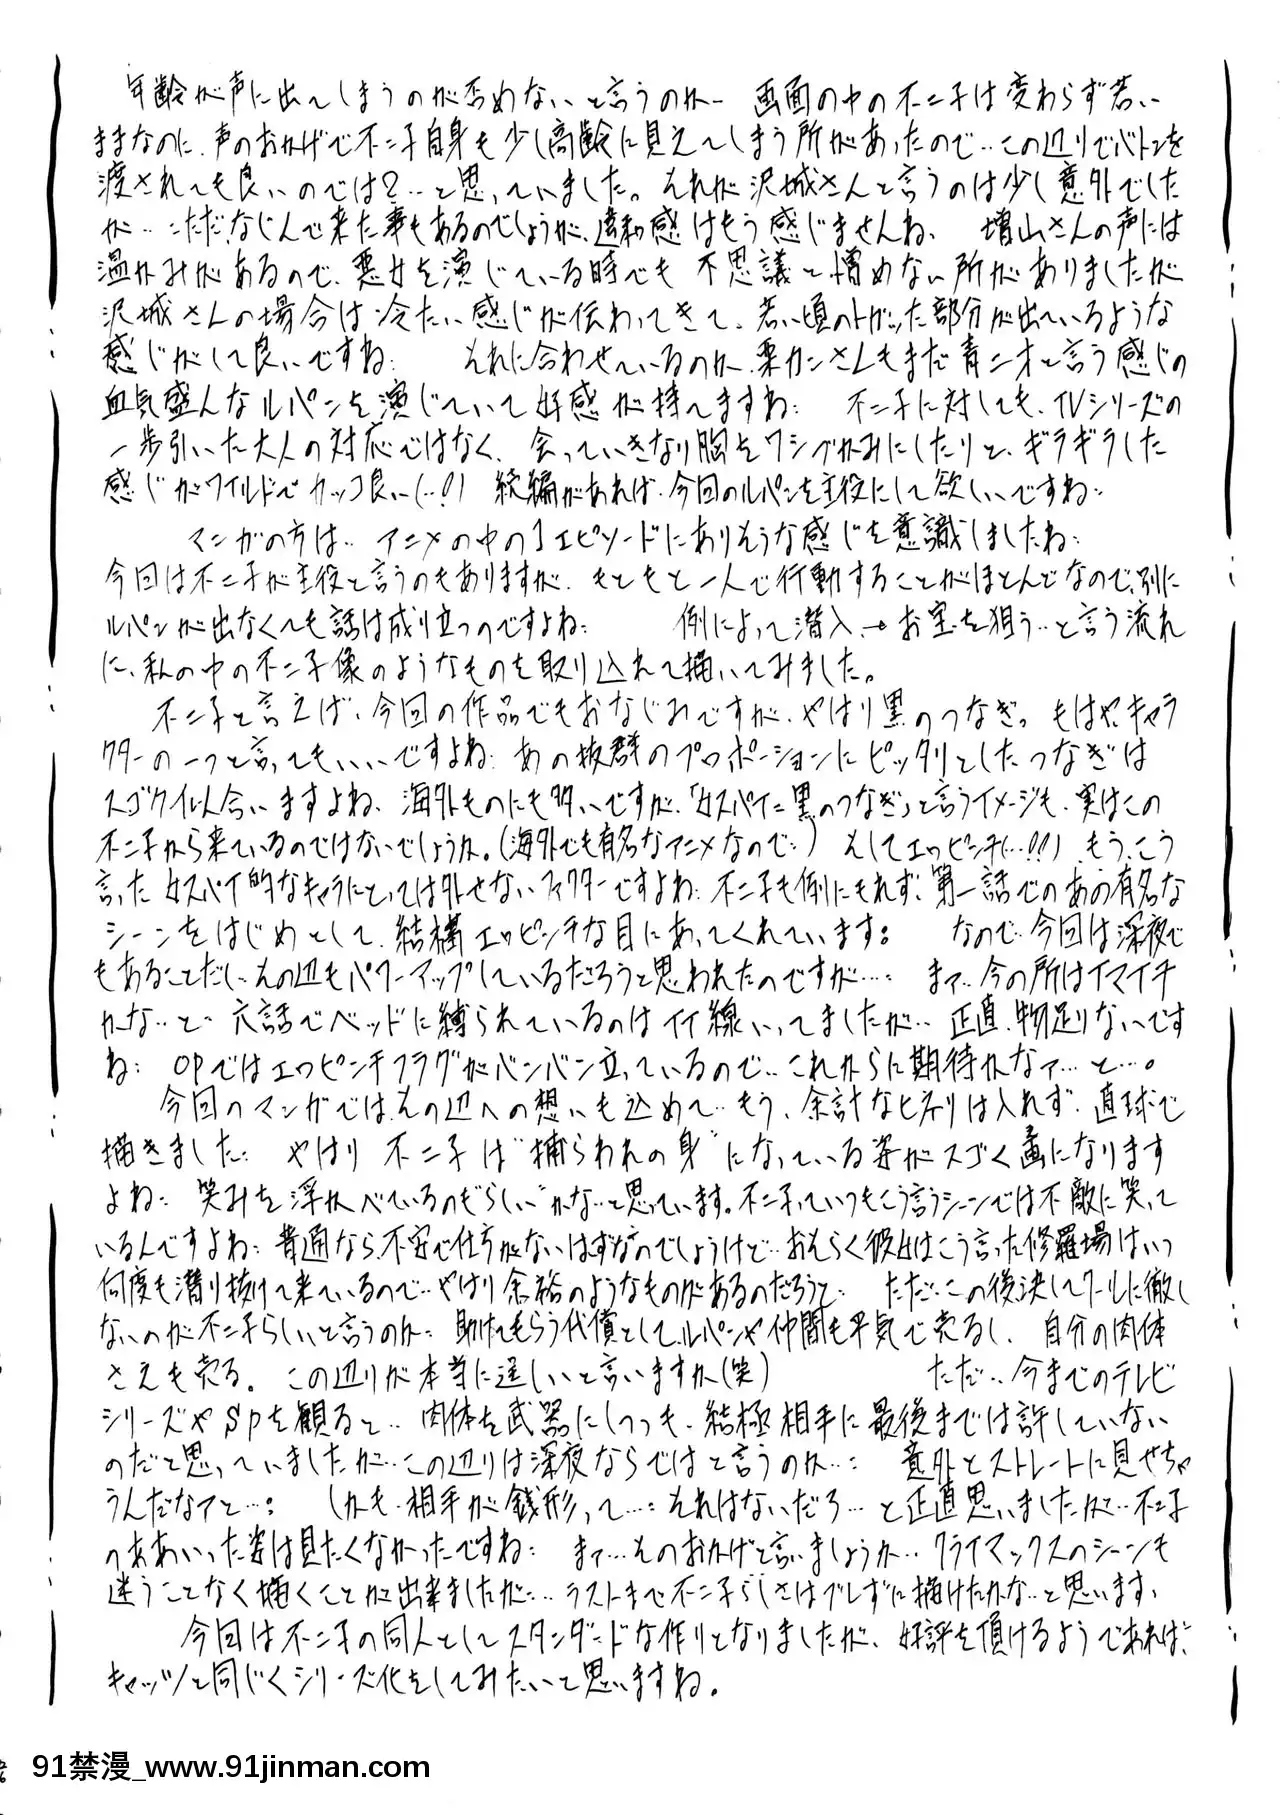 年齢が声に出てしまうのが否めないと言うのか… 画面の中の不二子は変わらず若い
ままなのに、声のおかげで不二子自身も少し高齢に見えてしまう所があったので‥この辺りでバトンを
渡されても良いのでは?…と思っていました。それが沢城さんと言うのは少し意外でした
が‥ただ、なじんで来た事もあるのでしょうが、違和感はもう感じませんね、 増山さんの声には
温かみがあるので、悪女を演じている時でも 不思議と憎めない所がありましたが
沢城さんの場合は冷たい感じが伝わってきて、若い頃のトガった部分が出ているような
感じがして良いですね: それに合わせているのか、栗カンさんもまだ青二才と言う感じの
血気盛んなルパンを演じていて好感が持てますね: 不二子に対しても、TVシリーズの
一歩引いた大人の対応ではなく、会っていきなり胸をワシヅかみにしたりと、ギラギラした
感じがワイルドでカッコ良い(…!) 続編があれば、今回のルパンを主役にして欲しいですね:
マンガの方は‥ アニメの中の1エピソードにありそうな感じを意識しましたね:
今回は不二子が主役と言うのもありますが、もともと一人で行動することがほとんどなので、別に
ルパンが出なくても話は成り立つのですよね: 例によって潜入→お宝を狙う‥と言う流れ
に、私の中の不二子像のようなものを取り込れて描いてみました。
不二子と言えば、今回の作品でもおなじみですが、やはり黒のつなぎっ もはや、キャラ
クターの一つと言ってもいいですよね: あの抜群のプロポーションにピッタリとしたつなぎは
スゴク似合いますよね、海外ものにも多いですが、「女スパイ=黒のつなぎ」と言うイメージも、実はこの
不二子から来ているのではないでしょうか。(海外でも有名なアニメなので‥) そしてエロピンチ(…!!) もう、こう
言った女スパイ的なキャラにとっては外せないファクターですよね: 不二子も例にもれず、第一話でのあの有名な
シーンをはじめとして、結構エロピンチな目にあってくれています: なので‥今回は深夜で
もあることだし‥その辺もパワーアップしているだろうと思われたのですが…: まァ‥今の所はイマイチ
かな‥と‥ 六話でベッドに縛られているのはイイ線いってましたが‥ 正直、物足りないです
ね: OPではエロピンチフラグがバンバン立っているので‥これからに期待かなァ…と…。
今回のマンガでは、その辺への想いも込めて‥もう、余計なヒネリは入れず、直球で
描きました: やはり 不二子は"捕らわれの身"になっている姿がスゴく画になります
よね: 笑みを浮かべているのも"らしい"かな‥と思っています。不二子っていつもこう言うシーンでは不敵に笑って
いるんですよね: 普通なら、不安で仕方がないはずなのでしょうけど‥おそらく彼女はこう言った修羅場はいつ
何度も潜り抜けて来ているので‥やはり余裕のようなものがあるのだろうと‥ ただ‥この後決してクールに徹し
ないのが不二子らしいと言うのか: 助けてもらう代償として、ルパンや仲間も平気で売るし、自分の肉体
さえも売る。この辺りが本当に逞しいと言いますか(笑) ただ‥今までのテレビ
シリーズやSPを観ると‥肉体を武器にしつつも、結極相手に最後までは許していない
のだと思っていましたが‥この辺りは深夜ならではと言うのか…: 意外とストレートに見せちゃ
うんだなァと…: (しかも、相手が銭形って…:それはないだろ…と正直思いましたがで‥不二子
のああいった姿は見たくなかったですね: まァ…そのおかげと言いましょうか‥クライマックスのシーンも
迷うことなく描くことが出来ましたが… ラストまで不二子らしさはブレずに描けたかな‥と思います、
今回は不二子の同人としてスタンダードな作りとなりましたが、好評を頂けるようであれば、
キャッツと同じくシリーズ化をしてみたいと思いますね。
91禁漫_www.91jinman.com